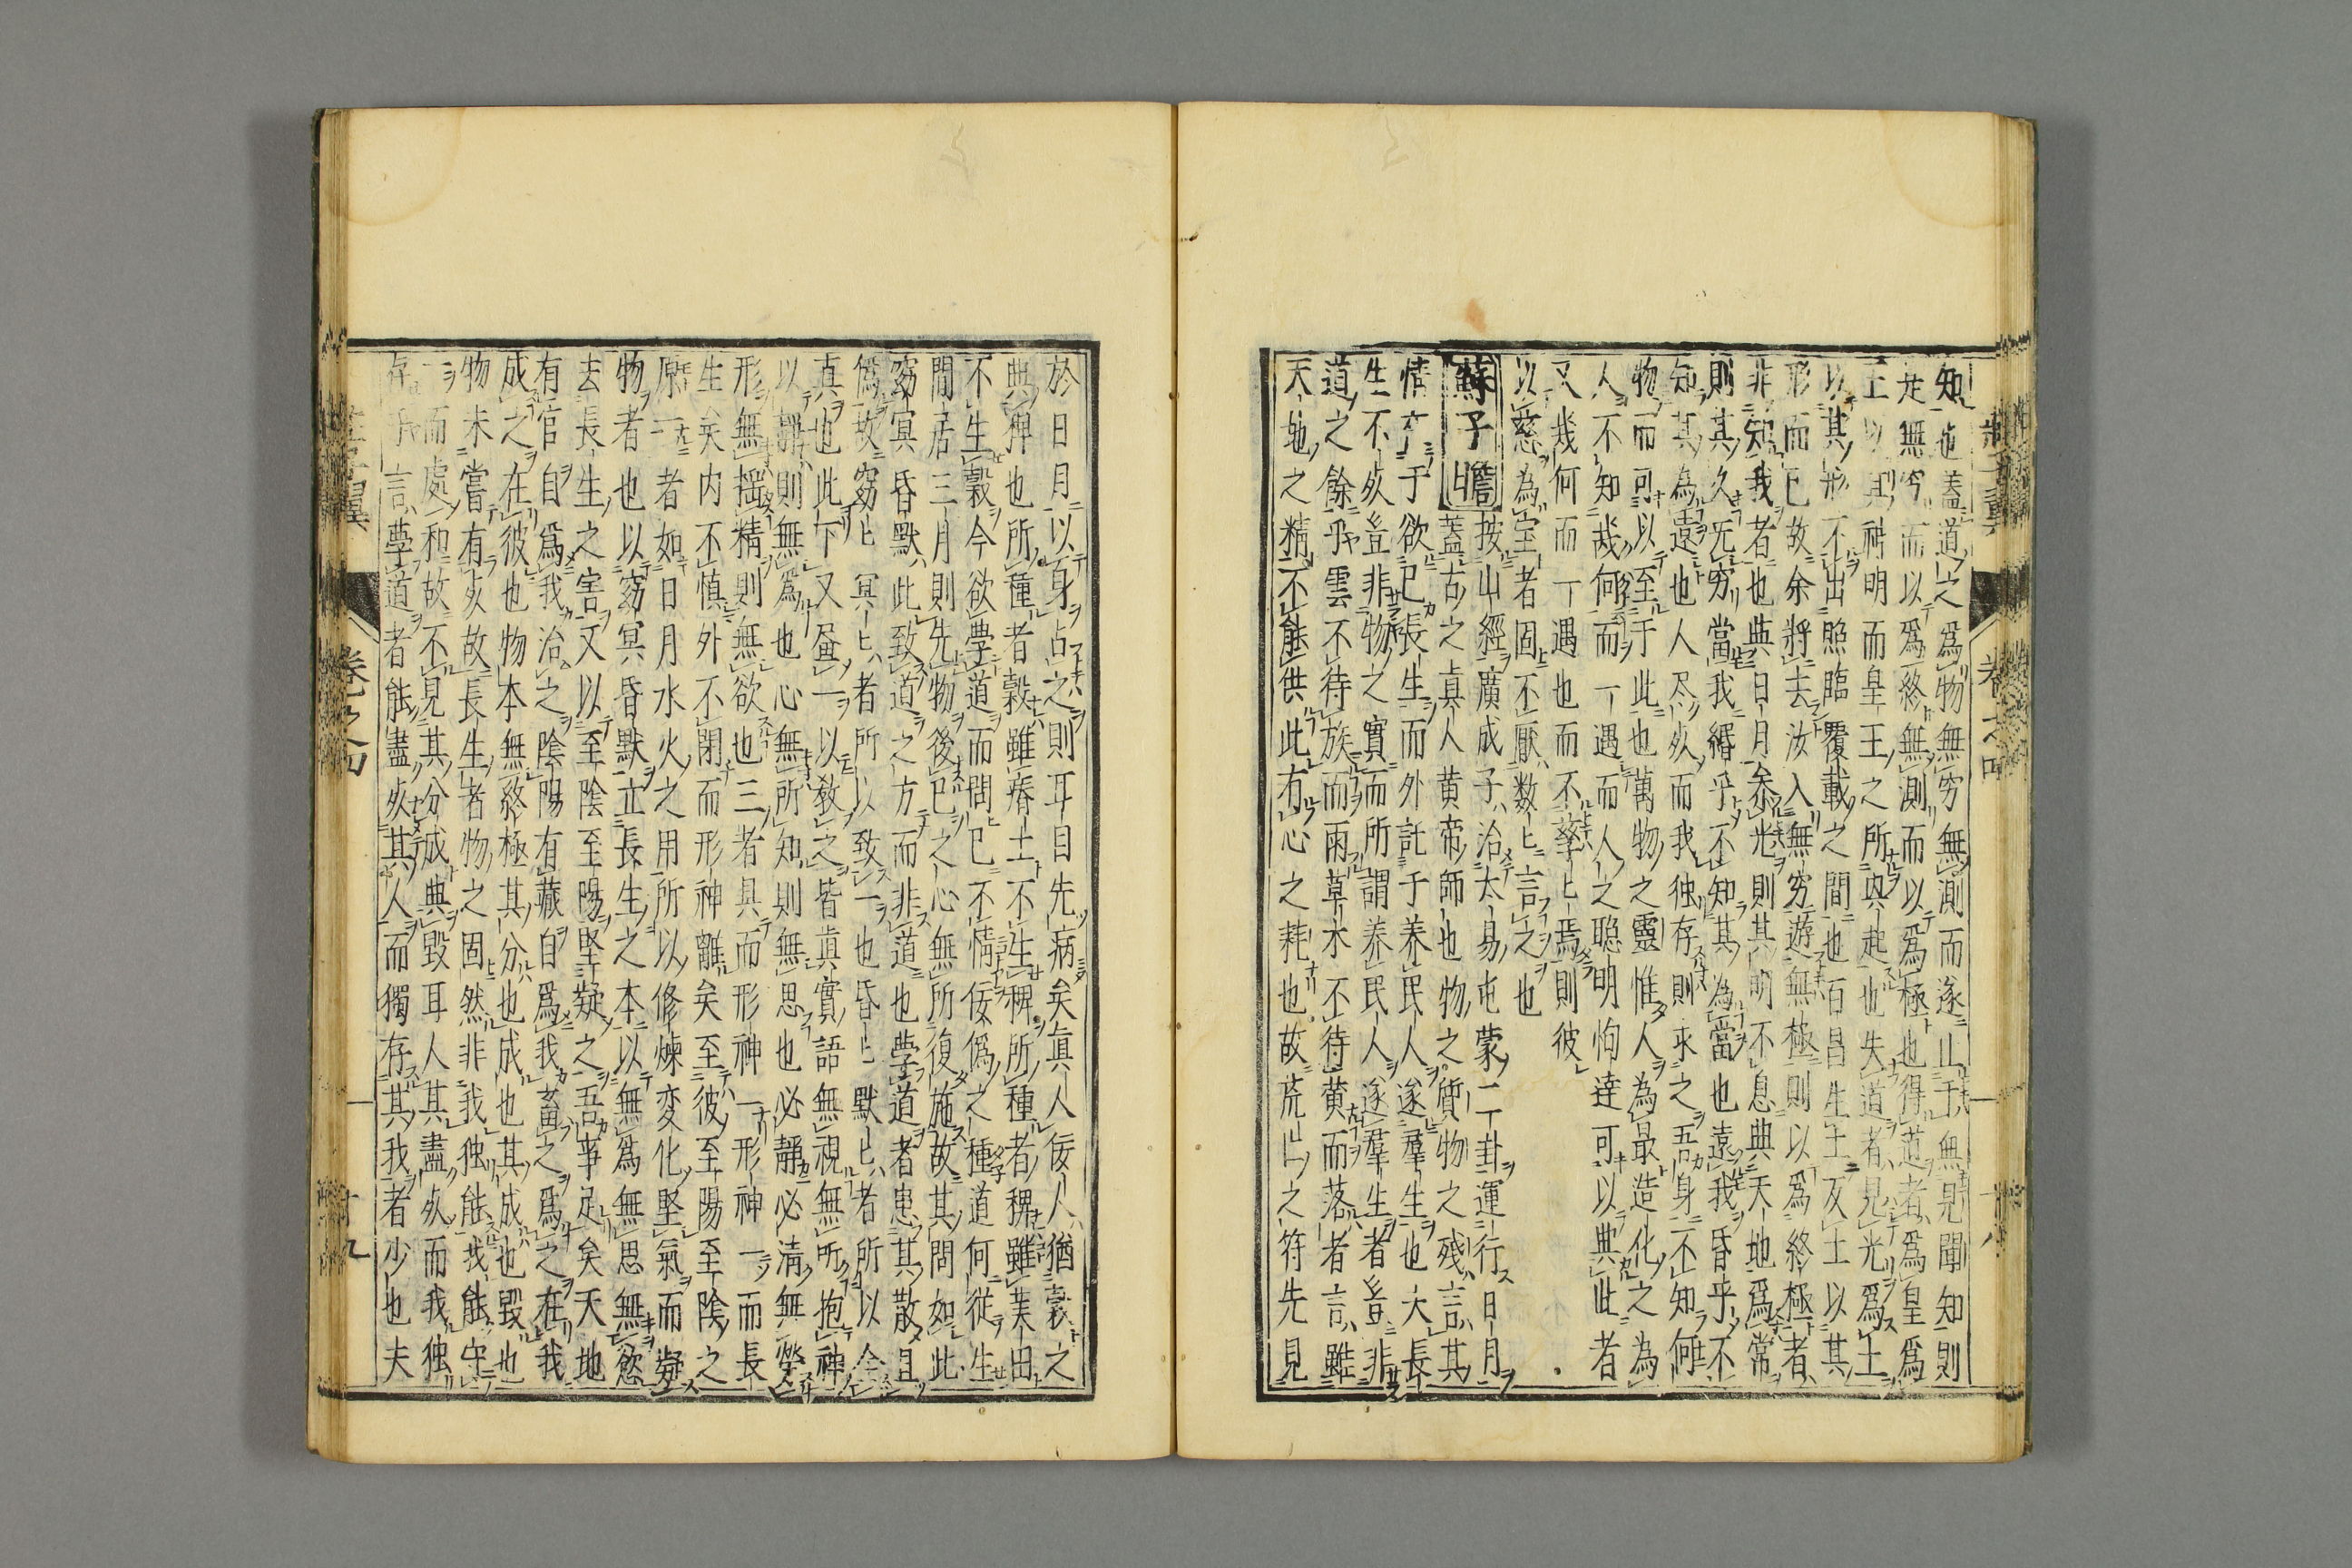 知也蓋道之為物無穷無測而遂止于無見聞知則
是無穷而以爲終無測而以爲極也得道者爲皇爲
王以其神明而皇王之所與起也失道者見光爲土
以其形不出照臨覆載之間也百昌生土反土以其
形而已故余將去汝入無穷遊無極則以爲終極者
非知我者也與日月參光則其明不息與天地爲常
則其久无穷當我緡乎不知其為當也遠我昏乎不
知其為遠也人尽死而我独存則求之吾身不知何
物而可以至于此也萬物之靈惟人為最造化之為
人不知幾何而一遇而人之聡明恂達可以與此者
又幾何而一遇也而不孳〻焉則彼
以慈為宝者固不厭数〻言之也
蘇子瞻 按山經廣成子治太易屯蒙二卦運行日月
蓋古之眞人黄帝師也物之質物之殘言其
情在于欲已長生而外託于养民人遂羣生也夫長
生不死豈非物之實而所謂养民人遂羣生者豈非
道之餘乎雲不待族而雨草木不待黄而落者言雖
天地之精不能供此有心之耗也故荒〻之符先見
莊子翼 卷之四 十八
於日月以身占之則耳目先病矣眞人佞人猶穀之
與稗也所種者穀雖瘠土不生稗所種者稗雖美田
不生穀今欲學道而問已不情佞偽之種道何從生
間居三月則先物後已之心無所復施故其問如此
窈冥昏默此致道之方而非道也學道者患其散且
偽故窈〻冥〻者所以致一也昏〻默〻者所以全
真也此下又盡一以敎之皆眞實語無視無所抱神
以靜則無為也心無所知則無思也必靜必清無勞
形無揺精則無欲也三者具而形神一形神一而長
生矣内不慎外不閉而形神離矣至彼至陽至陰之
原一者如日月水火之用所以修煉变化堅氣而凝
物者也以窈冥昏默立長生之本以無爲無思無慾
去長生之害又以至陰至陽堅凝之吾事足矣天地
有官自爲我治之陰陽有藏自爲我畜之爲之在我
成之在彼也物本無終極其分也成也其成也毀也
物未嘗有死故長生者物之固然非我独能我能守
一而處和故不見其分成與毀耳人其盡死而我独
存乎言學道者能盡死其人而獨存其我者少也夫
莊子翼 卷之四 十九